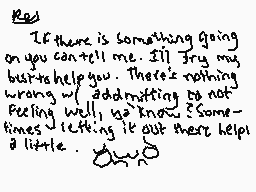 Re:
If there is something going
on you can tell me. I'll try my
best to help you. There's nothing
wrong w/ addmitting to not
feeling well, ya know? Some-
times letting it out there helps
a little.